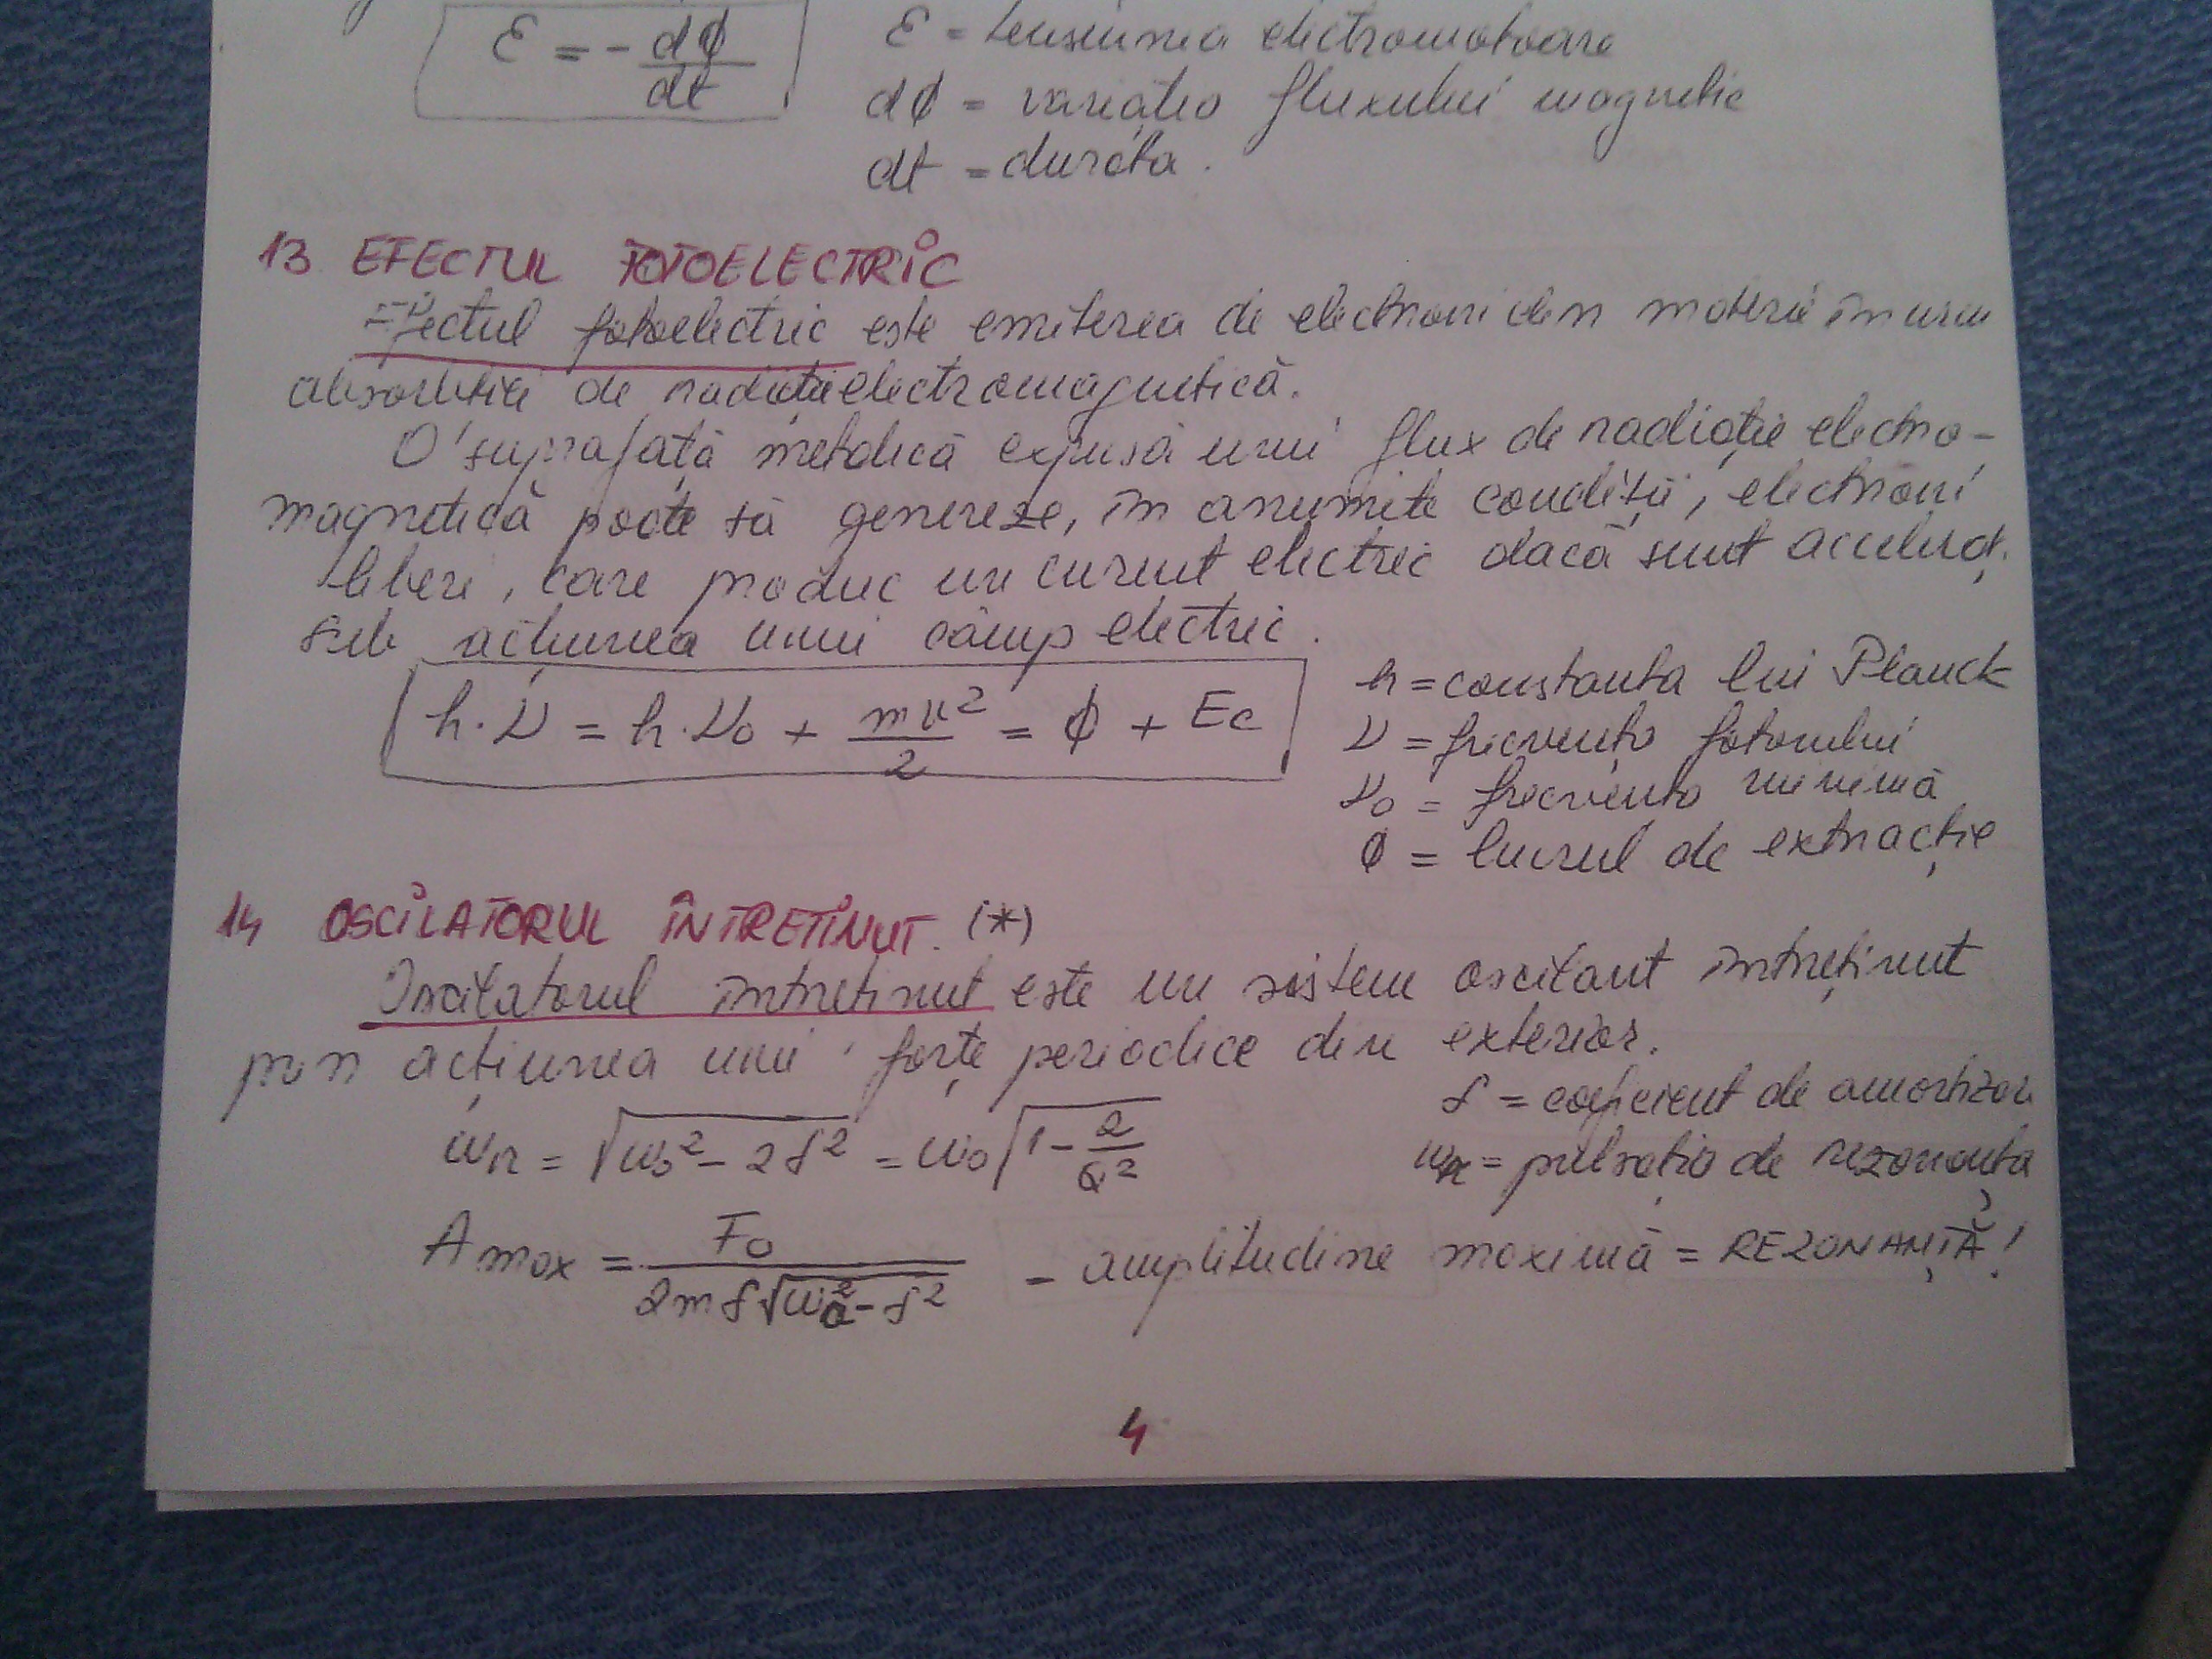 ε = - dΦ/dt
ε = tensiunea electromotoare
dΦ = variația fluxului magnetic
dt = durata.
13 EFECTUL FOTOELECTRIC
Efectul fotoelectric este emiterea de electroni din materie în urma
absorbției de radiație electromagnetică.
O suprafață metalică expusă unui flux de radiație electro-
magnetică poate să genereze, în anumite condiții, electroni
liberi, care produc un curent electric dacă sunt accelerați
sub acțiunea unui câmp electric.
h·ν = h·ν₀ + mv²/2 = Φ + Ec
h = constanta lui Planck
ν = frecvența fotonului
ν₀ = frecvența minimă
Φ = lucrul de extracție
14 OSCILATORUL ÎNTREȚINUT. (*)
Oscilatorul întreținut este un sistem oscilant întreținut
prin acțiunea unei forțe periodice din exterior.
δ = coeficient de amortizare
ωr = √(ω₀² - 2δ²) = ω₀√(1 - 2/Q²)
ωr = pulsația de rezonanță
Amax = F₀/(2mδ√(ω₀² - δ²)) - amplitudine maximă = REZONANȚĂ!
4